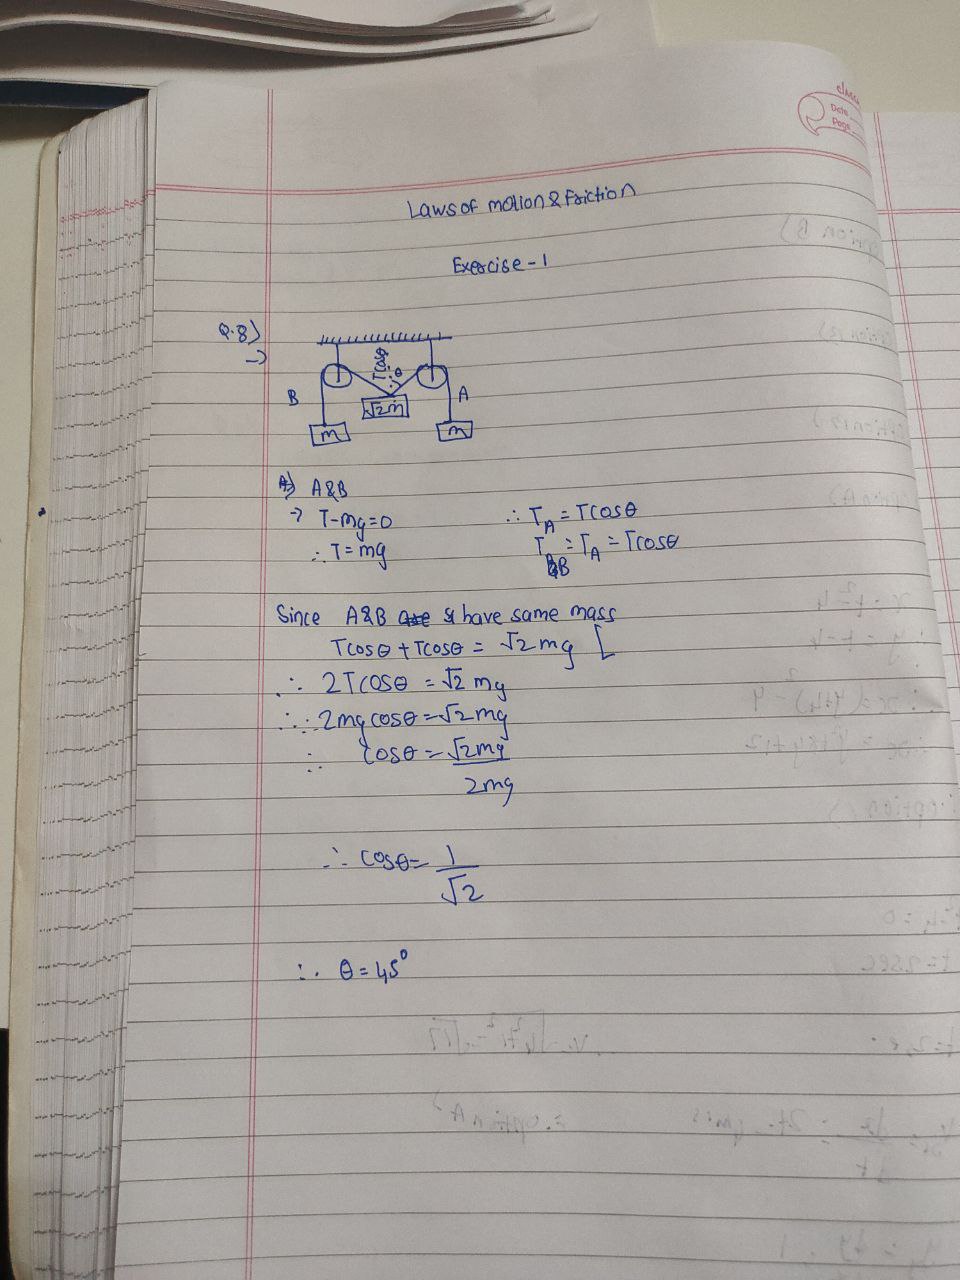 Date
Page
Laws of motion & friction
Exercise - 1
Q.8)
→
Tcosθ
θ
B
√2m
A
m
m
A) A&B
→ T-mg=0
∴ T=mg
∴ T_A = Tcosθ
T_B = T_A = Tcosθ
Since A&B have same mass
Tcosθ + Tcosθ = √2 mg [
∴ 2Tcosθ = √2 mg
∴ 2mgcosθ = √2mg
∴ cosθ = √2mg
2mg
∴ cosθ = 1
√2
∴ θ = 45°